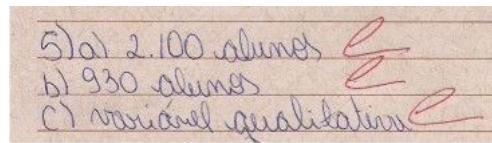 5) a) 2.100 alunos
b) 930 alunos
c) variável qualitativa